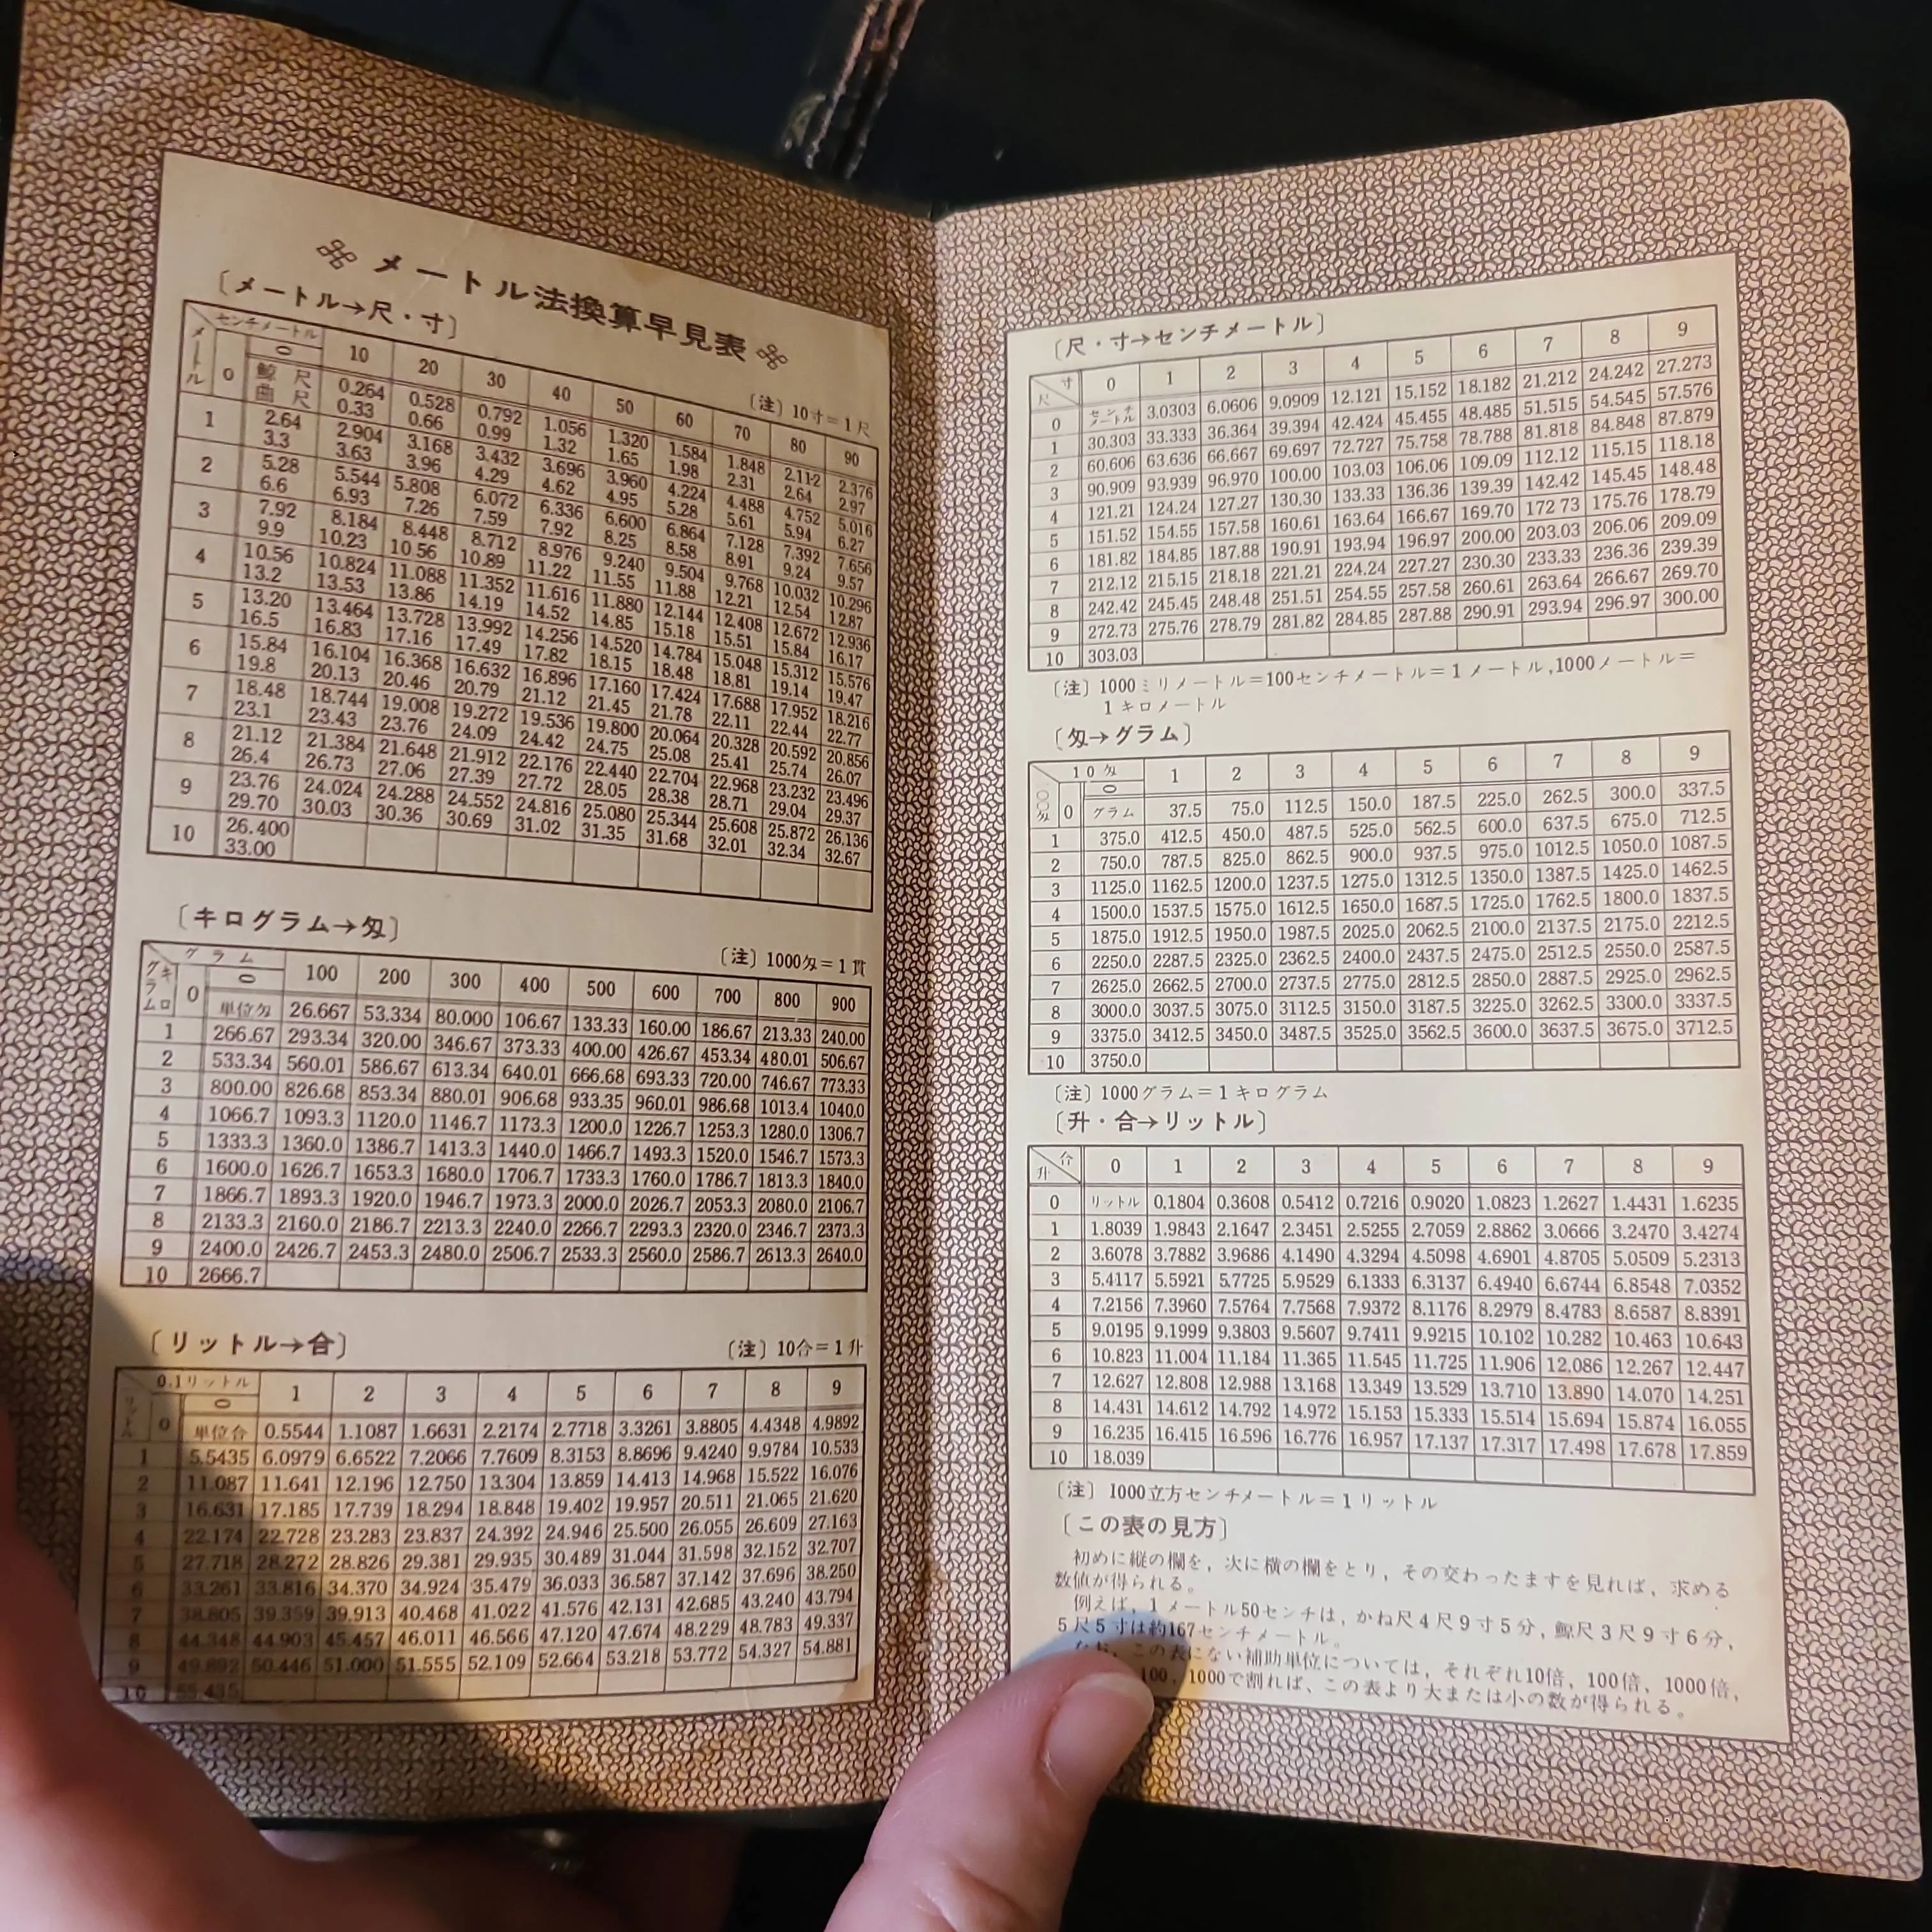 メートル法換算早見表
〔メートル→尺・寸〕
〔注〕10寸＝1尺
メートル センチメートル 0 10 20 30 40 50 60 70 80 90
0 鯨尺 0.264 0.528 0.792 1.056 1.320 1.584 1.848 2.112 2.376
曲尺 0.33 0.66 0.99 1.32 1.65 1.98 2.31 2.64 2.97
1 2.64 2.904 3.168 3.432 3.696 3.960 4.224 4.488 4.752 5.016
3.3 3.63 3.96 4.29 4.62 4.95 5.28 5.61 5.94 6.27
2 5.28 5.544 5.808 6.072 6.336 6.600 6.864 7.128 7.392 7.656
6.6 6.93 7.26 7.59 7.92 8.25 8.58 8.91 9.24 9.57
3 7.92 8.184 8.448 8.712 8.976 9.240 9.504 9.768 10.032 10.296
9.9 10.23 10.56 10.89 11.22 11.55 11.88 12.21 12.54 12.87
4 10.56 10.824 11.088 11.352 11.616 11.880 12.144 12.408 12.672 12.936
13.2 13.53 13.86 14.19 14.52 14.85 15.18 15.51 15.84 16.17
5 13.20 13.464 13.728 13.992 14.256 14.520 14.784 15.048 15.312 15.576
16.5 16.83 17.16 17.49 17.82 18.15 18.48 18.81 19.14 19.47
6 15.84 16.104 16.368 16.632 16.896 17.160 17.424 17.688 17.952 18.216
19.8 20.13 20.46 20.79 21.12 21.45 21.78 22.11 22.44 22.77
7 18.48 18.744 19.008 19.272 19.536 19.800 20.064 20.328 20.592 20.856
23.1 23.43 23.76 24.09 24.42 24.75 25.08 25.41 25.74 26.07
8 21.12 21.384 21.648 21.912 22.176 22.440 22.704 22.968 23.232 23.496
26.4 26.73 27.06 27.39 27.72 28.05 28.38 28.71 29.04 29.37
9 23.76 24.024 24.288 24.552 24.816 25.080 25.344 25.608 25.872 26.136
29.70 30.03 30.36 30.69 31.02 31.35 31.68 32.01 32.34 32.67
10 26.400
33.00
〔キログラム→匁〕
〔注〕1000匁＝1貫
キログラム グラム 0 100 200 300 400 500 600 700 800 900
0 単位匁 26.667 53.334 80.000 106.67 133.33 160.00 186.67 213.33 240.00
1 266.67 293.34 320.00 346.67 373.33 400.00 426.67 453.34 480.01 506.67
2 533.34 560.01 586.67 613.34 640.01 666.68 693.33 720.00 746.67 773.33
3 800.00 826.68 853.34 880.01 906.68 933.35 960.01 986.68 1013.4 1040.0
4 1066.7 1093.3 1120.0 1146.7 1173.3 1200.0 1226.7 1253.3 1280.0 1306.7
5 1333.3 1360.0 1386.7 1413.3 1440.0 1466.7 1493.3 1520.0 1546.7 1573.3
6 1600.0 1626.7 1653.3 1680.0 1706.7 1733.3 1760.0 1786.7 1813.3 1840.0
7 1866.7 1893.3 1920.0 1946.7 1973.3 2000.0 2026.7 2053.3 2080.0 2106.7
8 2133.3 2160.0 2186.7 2213.3 2240.0 2266.7 2293.3 2320.0 2346.7 2373.3
9 2400.0 2426.7 2453.3 2480.0 2506.7 2533.3 2560.0 2586.7 2613.3 2640.0
10 2666.7
〔リットル→合〕
〔注〕10合＝1升
リットル 0.1リットル 0 1 2 3 4 5 6 7 8 9
0 単位合 0.5544 1.1087 1.6631 2.2174 2.7718 3.3261 3.8805 4.4348 4.9892
1 5.5435 6.0979 6.6522 7.2066 7.7609 8.3153 8.8696 9.4240 9.9784 10.533
2 11.087 11.641 12.196 12.750 13.304 13.859 14.413 14.968 15.522 16.076
3 16.631 17.185 17.739 18.294 18.848 19.402 19.957 20.511 21.065 21.620
4 22.174 22.728 23.283 23.837 24.392 24.946 25.500 26.055 26.609 27.163
5 27.718 28.272 28.826 29.381 29.935 30.489 31.044 31.598 32.152 32.707
6 33.261 33.816 34.370 34.924 35.479 36.033 36.587 37.142 37.696 38.250
7 38.805 39.359 39.913 40.468 41.022 41.576 42.131 42.685 43.240 43.794
8 44.348 44.903 45.457 46.011 46.566 47.120 47.674 48.229 48.783 49.337
9 49.892 50.446 51.000 51.555 52.109 52.664 53.218 53.772 54.327 54.881
10 55.435
〔尺・寸→センチメートル〕
尺 寸 0 1 2 3 4 5 6 7 8 9
0 センチメートル 3.0303 6.0606 9.0909 12.121 15.152 18.182 21.212 24.242 27.273
1 30.303 33.333 36.364 39.394 42.424 45.455 48.485 51.515 54.545 57.576
2 60.606 63.636 66.667 69.697 72.727 75.758 78.788 81.818 84.848 87.879
3 90.909 93.939 96.970 100.00 103.03 106.06 109.09 112.12 115.15 118.18
4 121.21 124.24 127.27 130.30 133.33 136.36 139.39 142.42 145.45 148.48
5 151.52 154.55 157.58 160.61 163.64 166.67 169.70 172 73 175.76 178.79
6 181.82 184.85 187.88 190.91 193.94 196.97 200.00 203.03 206.06 209.09
7 212.12 215.15 218.18 221.21 224.24 227.27 230.30 233.33 236.36 239.39
8 242.42 245.45 248.48 251.51 254.55 257.58 260.61 263.64 266.67 269.70
9 272.73 275.76 278.79 281.82 284.85 287.88 290.91 293.94 296.97 300.00
10 303.03
〔注〕1000ミリメートル＝100センチメートル＝1メートル,1000メートル＝
1キロメートル
〔匁→グラム〕
100匁 10匁 0 1 2 3 4 5 6 7 8 9
0 グラム 37.5 75.0 112.5 150.0 187.5 225.0 262.5 300.0 337.5
1 375.0 412.5 450.0 487.5 525.0 562.5 600.0 637.5 675.0 712.5
2 750.0 787.5 825.0 862.5 900.0 937.5 975.0 1012.5 1050.0 1087.5
3 1125.0 1162.5 1200.0 1237.5 1275.0 1312.5 1350.0 1387.5 1425.0 1462.5
4 1500.0 1537.5 1575.0 1612.5 1650.0 1687.5 1725.0 1762.5 1800.0 1837.5
5 1875.0 1912.5 1950.0 1987.5 2025.0 2062.5 2100.0 2137.5 2175.0 2212.5
6 2250.0 2287.5 2325.0 2362.5 2400.0 2437.5 2475.0 2512.5 2550.0 2587.5
7 2625.0 2662.5 2700.0 2737.5 2775.0 2812.5 2850.0 2887.5 2925.0 2962.5
8 3000.0 3037.5 3075.0 3112.5 3150.0 3187.5 3225.0 3262.5 3300.0 3337.5
9 3375.0 3412.5 3450.0 3487.5 3525.0 3562.5 3600.0 3637.5 3675.0 3712.5
10 3750.0
〔注〕1000グラム＝1キログラム
〔升・合→リットル〕
升 合 0 1 2 3 4 5 6 7 8 9
0 リットル 0.1804 0.3608 0.5412 0.7216 0.9020 1.0823 1.2627 1.4431 1.6235
1 1.8039 1.9843 2.1647 2.3451 2.5255 2.7059 2.8862 3.0666 3.2470 3.4274
2 3.6078 3.7882 3.9686 4.1490 4.3294 4.5098 4.6901 4.8705 5.0509 5.2313
3 5.4117 5.5921 5.7725 5.9529 6.1333 6.3137 6.4940 6.6744 6.8548 7.0352
4 7.2156 7.3960 7.5764 7.7568 7.9372 8.1176 8.2979 8.4783 8.6587 8.8391
5 9.0195 9.1999 9.3803 9.5607 9.7411 9.9215 10.102 10.282 10.463 10.643
6 10.823 11.004 11.184 11.365 11.545 11.725 11.906 12,086 12.267 12.447
7 12.627 12.808 12.988 13.168 13.349 13.529 13.710 13.890 14.070 14.251
8 14.431 14.612 14.792 14.972 15.153 15.333 15.514 15.694 15.874 16.055
9 16.235 16.415 16.596 16.776 16.957 17.137 17.317 17.498 17.678 17.859
10 18.039
〔注〕1000立方センチメートル＝1リットル
〔この表の見方〕
初めに縦の欄を，次に横の欄をとり，その交わったますを見れば，求める
数値が得られる。
例えば，1メートル50センチは，かね尺4尺9寸5分，鯨尺3尺9寸6分，
5尺5寸は約167センチメートル。
なお，この表にない補助単位については，それぞれ10倍，100倍，1000倍，
100，1000で割れば，この表より大または小の数が得られる。